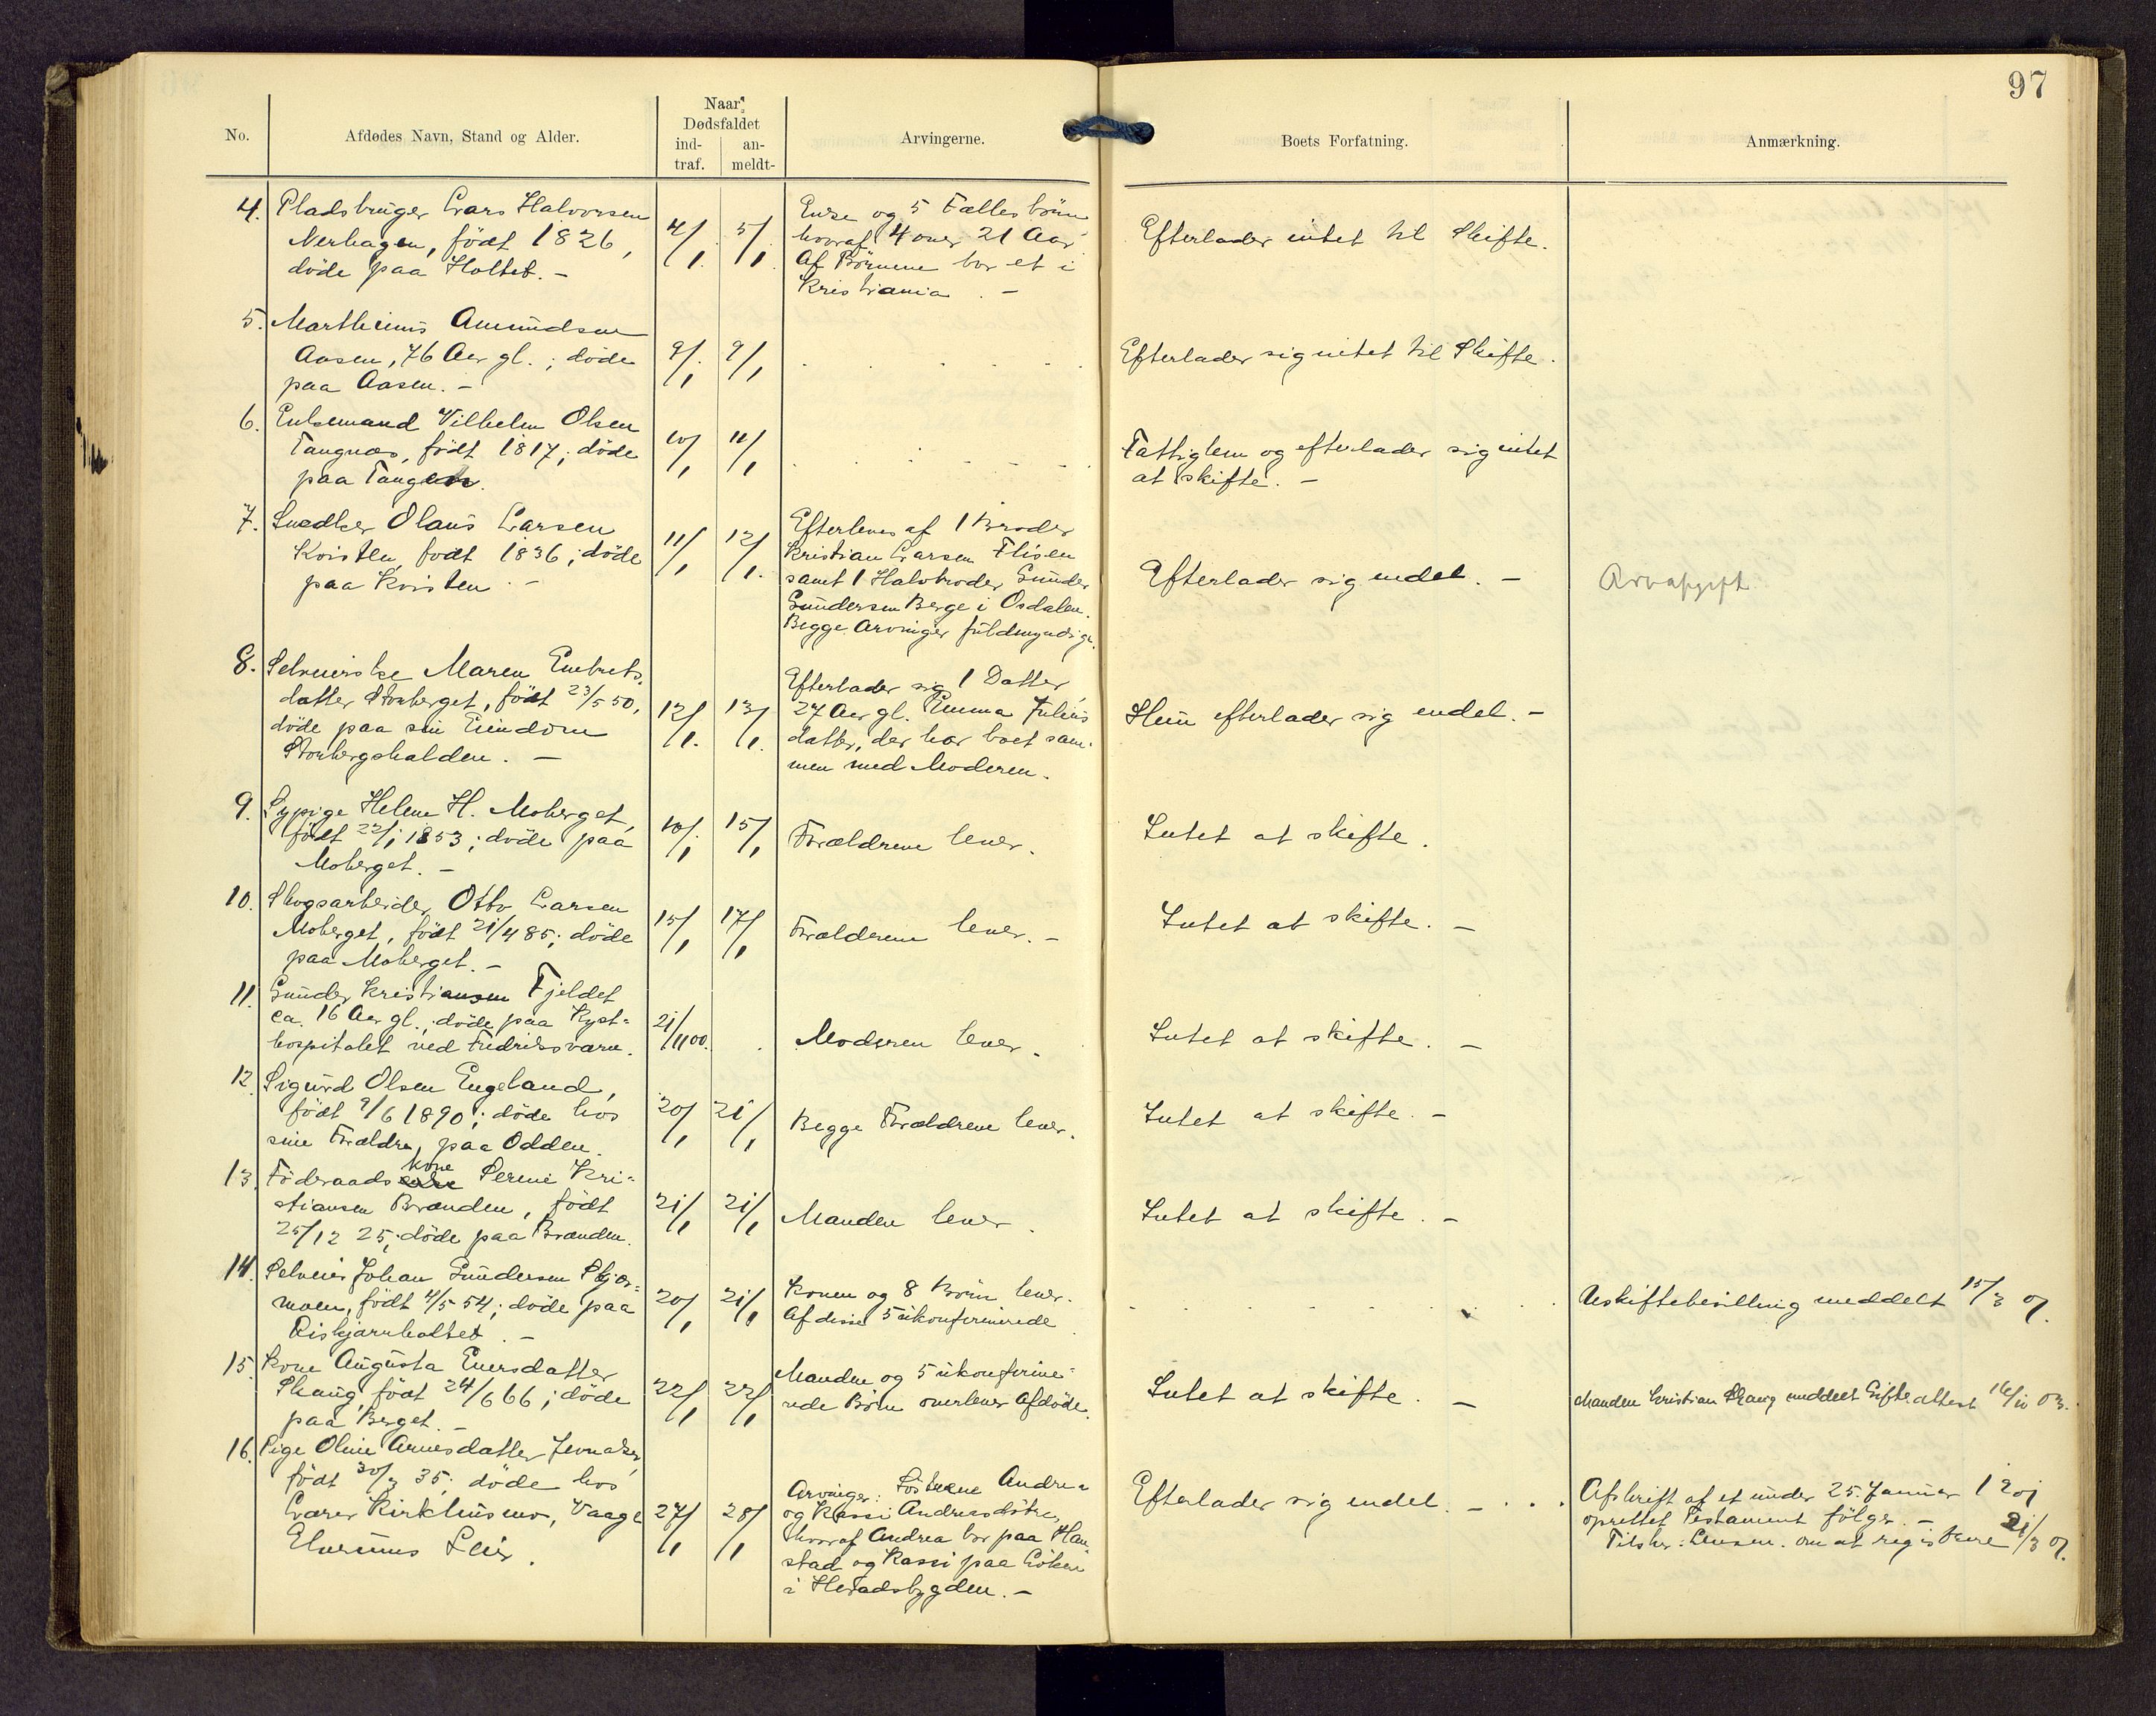 97
No.
Afdødes Navn, Stand og Alder.
Naar
Dødsfaldet
ind-
traf.
an-
meldt-
Arvingerne.
Boets Forfatning.
Anmærkning.
4. Pladsbruger Lars Halvorsen
Nerhagen, født 1826,
döde paa Holtet. -
4/1. 5/1
Enke og 5 Fælles börn
hvoraf 4 over 21 Aar
Af Börnene bor et i
Kristiania. -
Efterlader intet til Skifte.
5. Marthinus Amundsen
Aasen, 76 Aar gl.; döde
paa Aasen. -
9/1 9/1
Efterlader sig intet til Skifte.
6. Enkemand Vilhelm Olsen
Tangnæs, född 1817; döde
paa Tangen.
10/1 11/1
Fattiglem og efterlader sig intet
at skifte. -
7. Snedker Olaus Larsen
Kvisten, født 1836; döde
paa Kvisten. -
11/1 12/1.
Efterleves af 1 Broder
Kristian Larsen Flisen
samt 1 Halvbroder Gunder
Gundersen Berge i Osdalen.
Begge Arvinger fuldmyndige.
Efterlader sig endel. -
Arveafgift
8. Selveierske Maren Embrets-
datter Storberget, født 23/5 50,
döde paa sin Eiendom
Storbergshalden. -
12/1. 13/1.
Efterlader sig 1 Datter,
27 Aar gl. Emma Julius
datter, der har boet sam-
men med Moderen.
Hun efterlader sig endel. -
9. Sypige Helene H. Moberget,
født 22/1 1853; döde paa
Moberget. -
10/1 15/1
Forældrene lever.
Intet at skifte.
10. Skogsarbeider Otto Larsen
Moberget, født 21/4 85; döde
paa Moberget. -
15/1 17/1
Forælderene lever. -
Intet at skifte. -
11. Gunder Kristiansen Fjeldet
ca. 16 Aar gl., döde paa Kyst-
hospitalet ved Fredriksværn.
21/11 00.
Moderen lever.
Intet at skifte. -
12. Sigurd Olsen Engeland,
født 9/6 1890; döde hos
sine Forældre, paa Odden.
20/1 21/1
Begge Forældrene lever.
Intet at skifte. -
13. Föderaadskone Pernie Kri-
stiansen Brænden, født
25/12 25; döde paa Brænden.
21/1 21/1
Manden lever.
Intet at skifte. -
14. Selveier Johan Gundersen Skjær-
moen, født 4/5 54; döde paa
Riskjærnholtet. -
20/1 21/1
Konen og 8 Börn lever.
Af disse 5 ukonfirmerede
Uskiftebevilling meddelt 15/3 07.
15. Kone Augusta Eversdatter
Skaug, født 24/6 66; döde
paa Berget. -
22/1 22/1
Manden og 5 ukonfirme-
rede Börn overlever Afdöde.
Intet at skifte. -
Manden Kristian Skaug meddelt Gifteattest 16/10 03.
16. Pige Oline Arnesdatter Jevnaker,
født 30/3 35; döde hos
Lærer Kirkhusmo, Vaage
Elverums Leir.
27/1 28/1
Arvinger: Söstrene Andrea
og Kassi Andreasdötre,
hvoraf Andrea bor paa Han-
stad og Kassi paa Löken
i Heradsbygden. -
Efterlader sig endel. -
Afskrift af et under 25. Januar 1901
oprettet Testament fölger. -
Tilskr. Lensm. om at registrere 21/3 01.